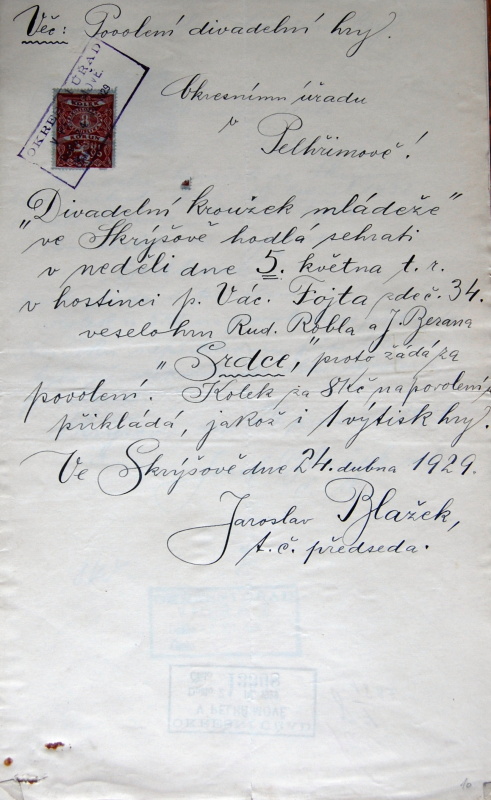 Věc: Povolení divadelní hry.
OKRESNÍ ÚŘAD
Okresnímu úřadu
v
Pelhřimově!
"Divadelní kroužek mládeže"
ve Skrýšově hodlá sehrati
v neděli dne 5. května t. r.
v hostinci p. Vác. Fojta zde č. 34.
veselohru Rud. Robla a J. Berana
"Srdce," proto žádá za
povolení. Kolek za 8 Kč na povolení
přikládá, jakož i 1 výtisk hry.
Ve Skrýšově dne 24. dubna 1929.
Jaroslav Blažek,
t. č. předseda.
10